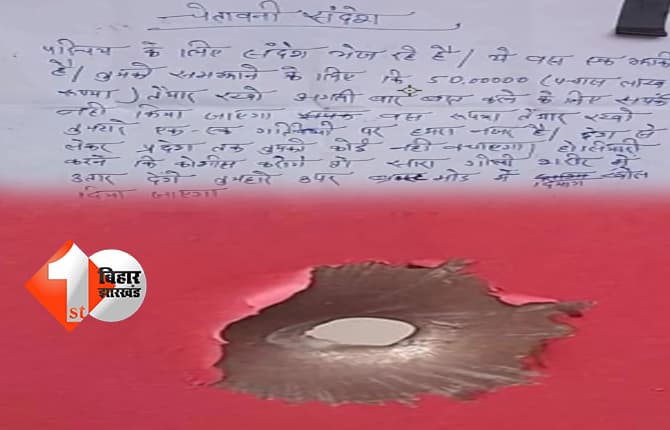 चेतावनी संदेश
पश्चिम के लिए संदेश भेज रहे है / ये बस एक
है / तुमको समझाने के लिए कि 50,00000 (पचास लाख
रूपया) तैयार रखो अगली बार बात करने के लिए
नही किया जाएगा बस रूपया तैयार रखो
तुमहारे एक-एक पर हमारा नजर है / देश से
लेकर प्रदेश तक तुमको कोई नही बचाएगा / होशियारी
करने कि कोशीस करोगे तो सारा गोली शरीर में
उतार देंगे तुमहारे उपर मोड में खोल
दिया जाएगा
1st
बिहार
झारखंड